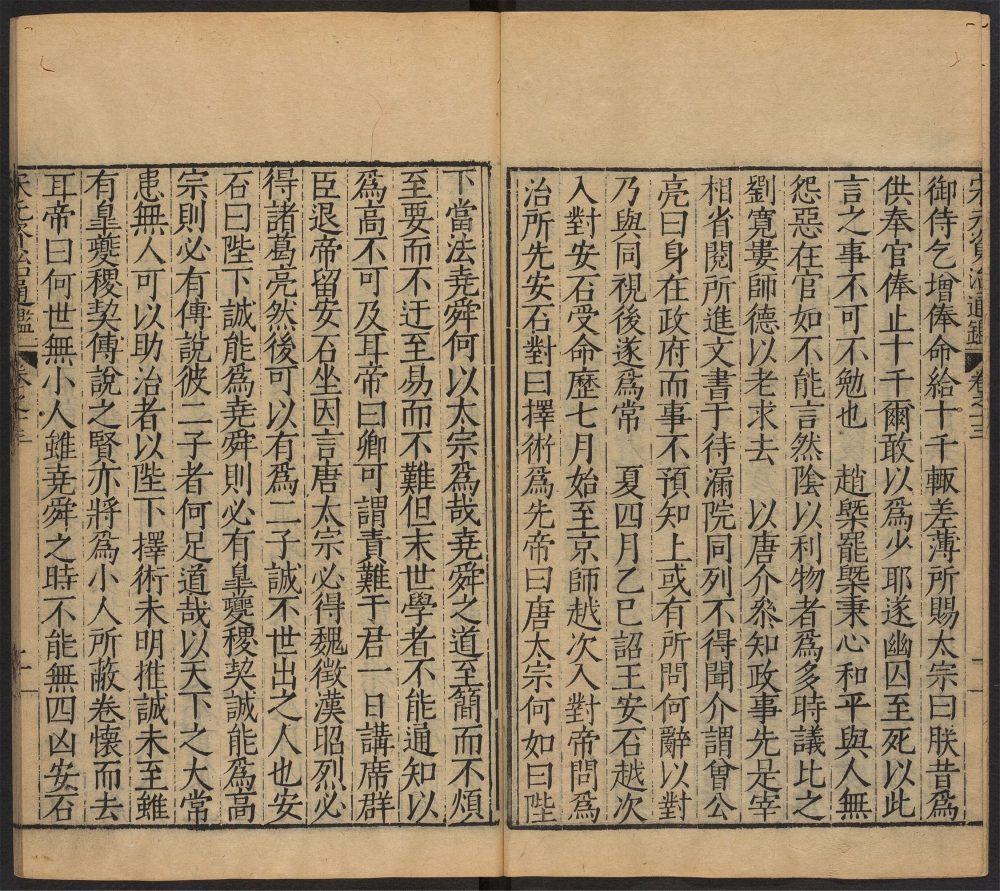 宋元資治通鑑 卷之三
御侍乞增俸命給十千輙差薄所賜太宗曰朕昔爲
供奉官俸止十千爾敢以爲少耶遂幽囚至死以此
言之事不可不勉也　趙槩罷槩秉心和平與人無
怨惡在官如不能言然陰以利物者爲多時議比之
劉寬婁師德以老求去　以唐介叅知政事先是宰
相省閱所進文書于待漏院同列不得聞介謂曾公
亮曰身在政府而事不預知上或有所問何辭以對
乃與同視後遂爲常　夏四月乙巳詔王安石越次
入對安石受命歷七月始至京師越次入對帝問爲
治所先安石對曰擇術爲先帝曰唐太宗何如曰陛
下當法堯舜何以太宗爲哉堯舜之道至簡而不煩
至要而不迂至易而不難但末世學者不能通知以
爲高不可及耳帝曰卿可謂責難于君一日講席群
臣退帝留安石坐因言唐太宗必得魏徵漢昭烈必
得諸葛亮然後可以有爲二子誠不世出之人也安
石曰陛下誠能爲堯舜則必有皐夔稷契誠能爲高
宗則必有傅說彼二子者何足道哉以天下之大常
患無人可以助治者以陛下擇術未明推誠未至雖
有皐夔稷契傅說之賢亦將爲小人所蔽卷懷而去
耳帝曰何世無小人雖堯舜之時不能無四凶安石
宋元資治通鑑 卷之三
十一